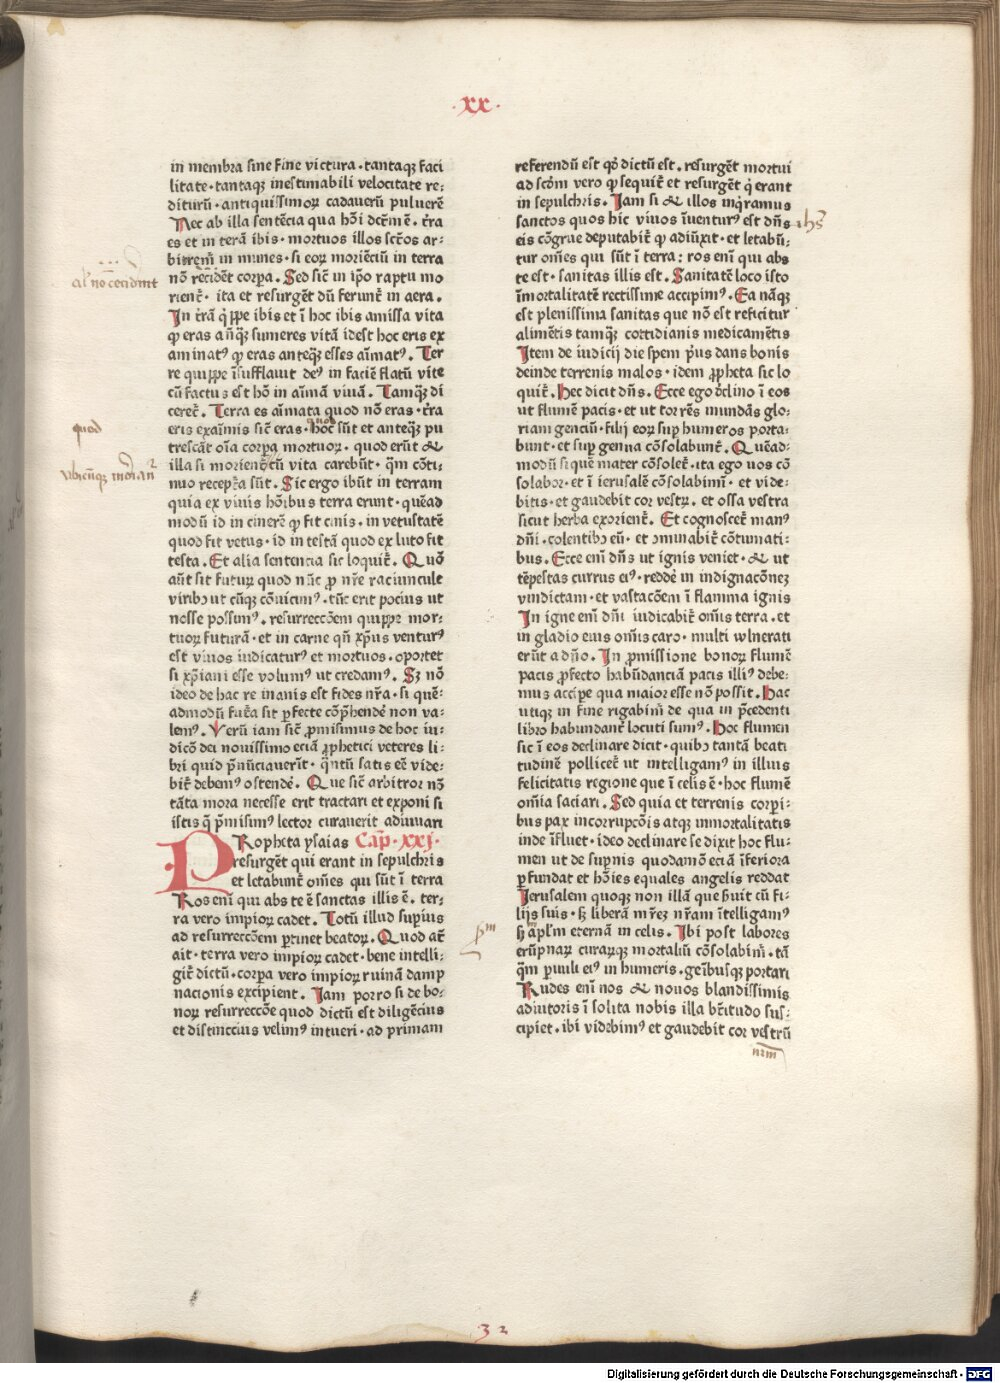 ·xx·
in membra sine fine victura·tantaqʒ faci
litate·tantaqʒ inestimabili velocitate re:
diturū·antiquissimoꝝ cadaverū pulverē
Nec ab illa sentēcia qua hōi dctm̄ ē·t̄ra
es et in terā ibis·mortuos illos sc̄tos ar-
bitrem̄ in munes·si eoꝝ moriēciū in terra
nō recidēt corpa. Sed sic̄ in ip̄o raptu mo
rient̄· ita et resurgēt dū ferunt̄ in aera.
In t̄rā q̄ppe ibis et ī hoc ibis amissa vita
ꝙ eras an̄qʒ sumeres vitā idest hoc eris ex
aminatꝰ ꝙ eras anteqʒ esses aīmatꝰ. Ter
re quippe īsufflauit deꝰ in faciē flatū vite
cū factus est hō in aīmā vivā. Tamqʒ di
ceret̄. Terra es aīmata quod nō eras·t̄ra
eris exaīmis sic̄ eras·hoc sūt et anteqʒ pu
trescāt oīa corpa mortuoꝝ·quod erūt &
illa si morient̄ cū vita carebūt·qm̄ cōti-
nuo recepta sūt. Sic ergo ibūt in terram
quia ex vivis hōibus terra erunt·quēad
modū id in cinerē ꝙ fit cinis·in vetustatē
quod fit vetus·id in testā quod ex luto fit
testa. Et alia sentencia sic loquit̄. Quō
aūt sit futuꝝ quod nūc ꝓ nr̄e raciuncule
viribꝰ ut cūqʒ cōnicimꝰ·tūc erit pocius ut
nosse possimꝰ·resurreccōem quippe mor-
tuoꝝ futurā·et in carne qn̄ xp̄us venturꝰ
est vivos iudicaturꝰ et mortuos·oportet
si xp̄iani esse volumꝰ ut credamꝰ. Sʒ nō
ideo de hac re inanis est fides nr̄a·si quē-
admodū futura sit ꝑfecte cōp̄hendē non va-
lemꝰ. Verū iam sic̄ ꝓmisimus de hoc iu-
dicō dei novissimo eciā ꝓphetici veteres li-
bri quid p̄nūciaverīt·q̄ntū satis eē vide-
bit̄ debemꝰ ostendē. Que sic̄ arbitror nō
tāta mora necesse erit tractari et exponi si
istis q̄ p̄misimꝰ lector curaverit adiuvari
PRopheta ysaias Cap̄·xxj·
resurgēt qui erant in sepulchris
et letabunt̄ om̄es qui sūt ī terra
Ros enī qui abs te ē sanctas illis ē. ter-
ra vero impioꝝ cadet. Totū illud supius
ad resurreccōem ꝑtinet beatoꝝ. Quod aūt
ait·terra vero impioꝝ cadet·bene intelli-
git̄ dictū·corpa vero impioꝝ ruinā damp
nacionis excipient. Iam porro si de bo-
noꝝ resurreccōe quod dictū est diligēcius
et distinccius velimꝰ intueri·ad primam
referendū est qd̄ dictū est. resurgēt mortui
ad scd̄m vero ꝙ sequit̄ et resurgēt q̄ erant
in sepulchris. Iam si & illos inq̄ramus
sanctos quos hic vivos īventurꝰ est dn̄s
eis cōgrue deputabit̄ ꝙ adiūxit·et letabū-
tur om̄es qui sūt ī terra: ros enī qui abs
te est·sanitas illis est. Sanitatē loco isto
īmortalitatē rectissime accipimꝰ. Ea nāqʒ
est plenissima sanitas que nō est reficitur
alimētis tamqʒ cottidianis medicamētis
Item de iudicij die spem p̄us dans bonis
deinde terrenis malos·idem ꝓpheta sic lo
quit̄. Hec dicit dn̄s. Ecce ego declino ī eos
ut flumē pacis·et ut torrēs inundās glo-
riam genciū·filij eoꝝ sup humeros porta-
bunt·et sup genua cōsolabunt̄. Quēad-
modū si quē mater cōsolet̄·ita ego vos cō
solabor·et ī ierusalē cōsolabimī·et vide-
bitis·et gaudebit cor vestꝝ·et ossa vestra
sicut herba exorient̄. Et cognoscet̄ manꝰ
dn̄i·colentibꝰ eū·et cominabit̄ cōtumati-
bus. Ecce enī dn̄s ut ignis veniet·& ut
tēpestas currus eiꝰ·reddē in indignacōneʒ
vindictam·et vastacōem ī flamma ignis
In igne enī dn̄i iudicabit̄ om̄is terra·et
in gladio eius om̄is caro·multi wlnerati
erūt a dn̄o. In ꝓmissione bonoꝝ flumē
pacis ꝓfecto habūdanciā pacis illiꝰ debe-
mus accipe qua maior esse nō possit. Hac
utiqʒ in fine rigabimī de qua in p̄cedenti
libro habundant̄ locuti sumꝰ. Hoc flumen
sic ī eos declinare dicit·quibꝰ tantā beati
tudinē pollicet̄ ut intelligamꝰ in illius
felicitatis regione que ī celis ē·hoc flumē
om̄ia saciari. Sed quia et terrenis corpi-
bus pax incorrupcōis atqʒ inmortalitatis
inde īfluet·ideo declinare se dixit hoc flu-
men ut de supnis quodāmō eciā īferiora
ꝑfundat et hōies equales angelis reddat
Ierusalem quoqʒ non illā que ẜuit cū fi-
lijs suis·sʒ liberā mr̄eʒ nr̄am ītelligamꝰ
sʒ apl̄m eternā in celis. Ibi post labores
erūpnaꝝ curaꝝqʒ mortaliū cōsolabimī·tā
qm̄ ꝑvuli eiꝰ in humeris·genibusqʒ portari
Rudes enī nos & novos blandissimis
adiutoris ī solita nobis illa bt̄itudo sus-
cipiet·ibi videbimꝰ et gaudebit cor vestrū
quod
32
Digitalisierung gefördert durch die Deutsche Forschungsgemeinschaft - DFG